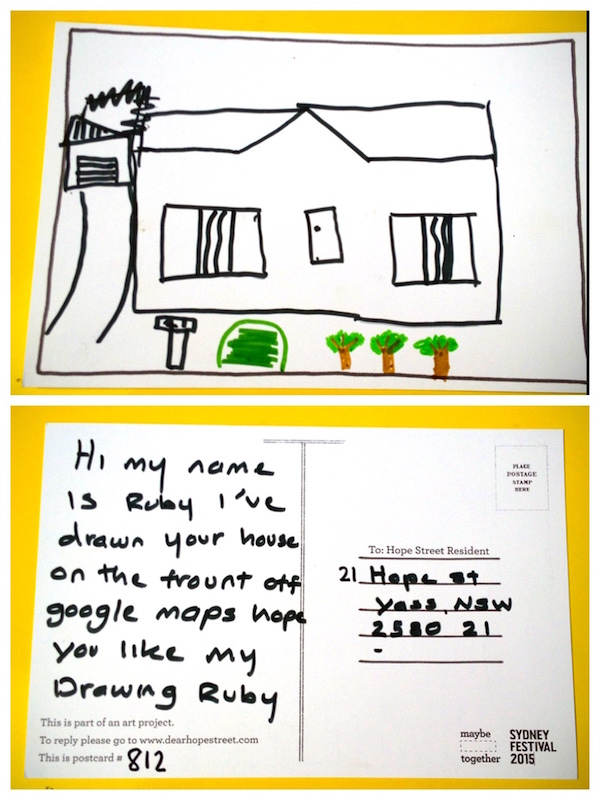 Hi my name
is Ruby I've
drawn your house
on the frount off
google maps hope
you like my
Drawing Ruby
This is part of an art project.
To reply please go to www.dearhopestreet.com
This is postcard # 812
PLACE
POSTAGE
STAMP
HERE
To: Hope Street Resident
21 Hope st
Yass, NSW
2580 21
-
maybe
together
SYDNEY
FESTIVAL
2015